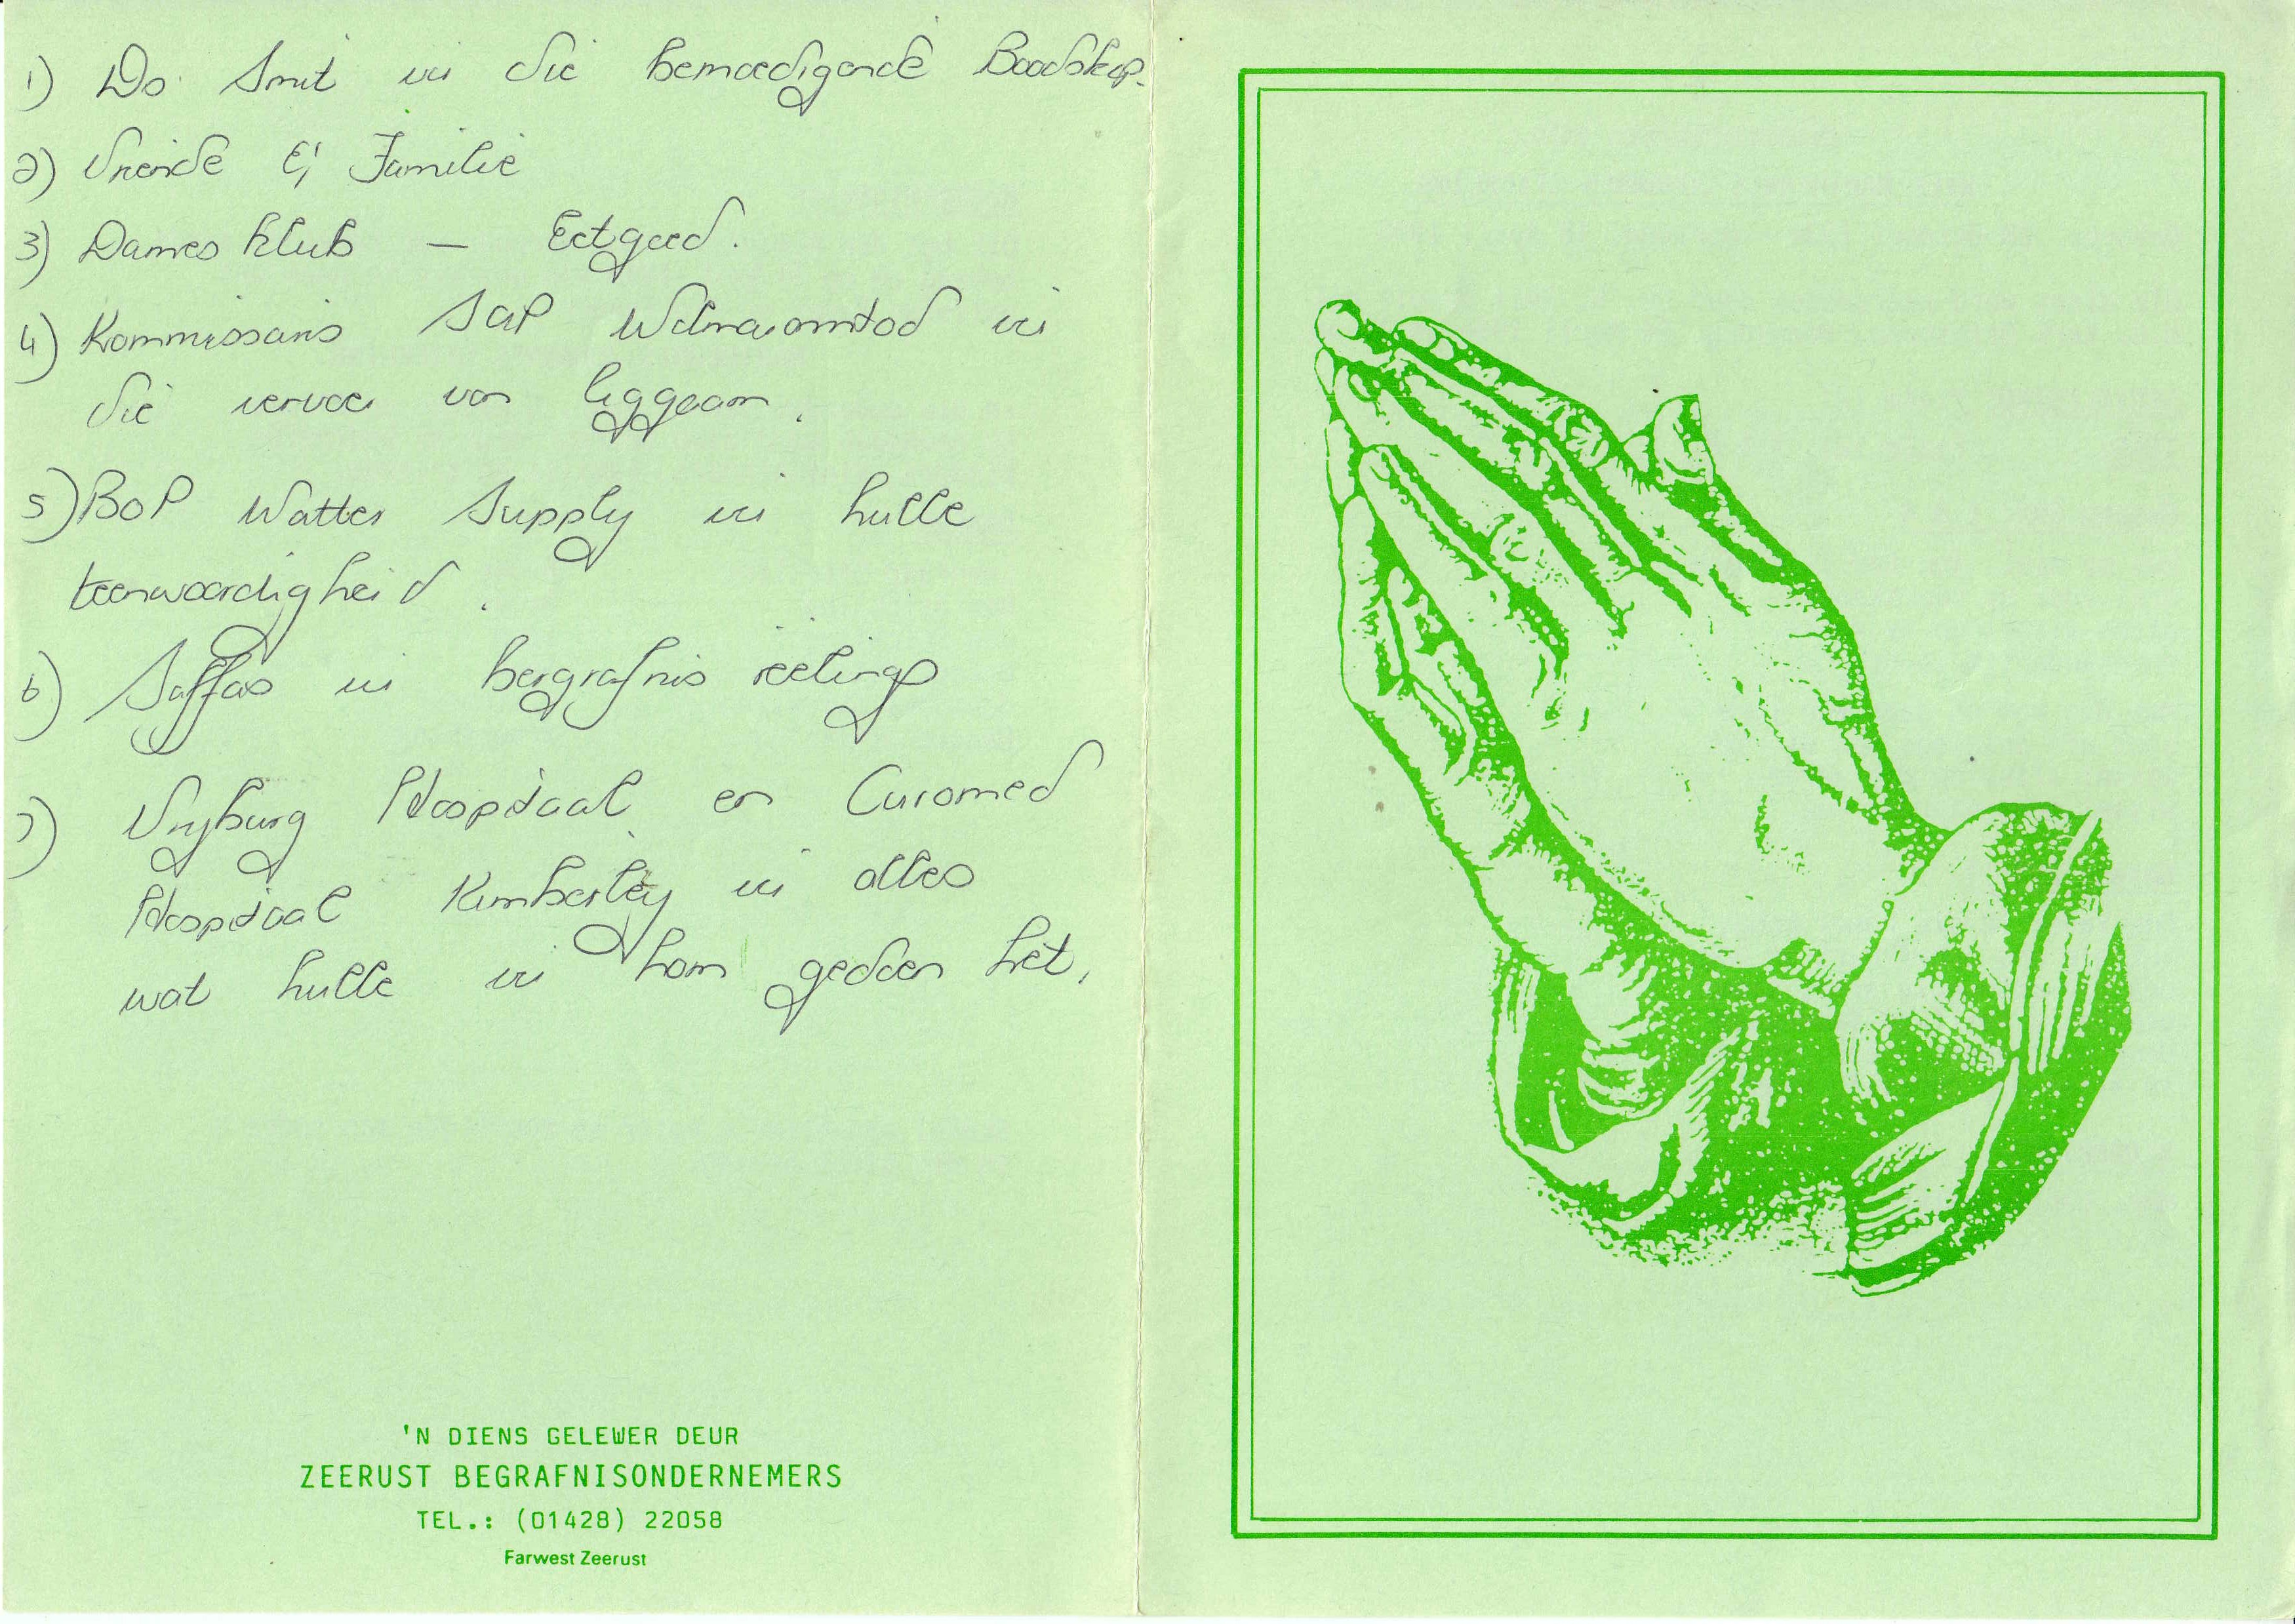 1) Ds Smit vir die bemoedigende Boodskap.
2) Vriende & Familie
3) Dames klub — Eetgoed.
4) Kommissaris SAP vir
die vervoer van liggaam.
5) BOP Watter Supply vir hulle
teenwoordigheid.
6) Saffas vir bergrafnis reëlings
7) Vryburg Hospitaal en Curomed
Hospitaal Kimberley vir alles
wat hulle vir hom gedoen het.
'N DIENS GELEWER DEUR
ZEERUST BEGRAFNISONDERNEMERS
TEL.: (01428) 22058
Farwest Zeerust